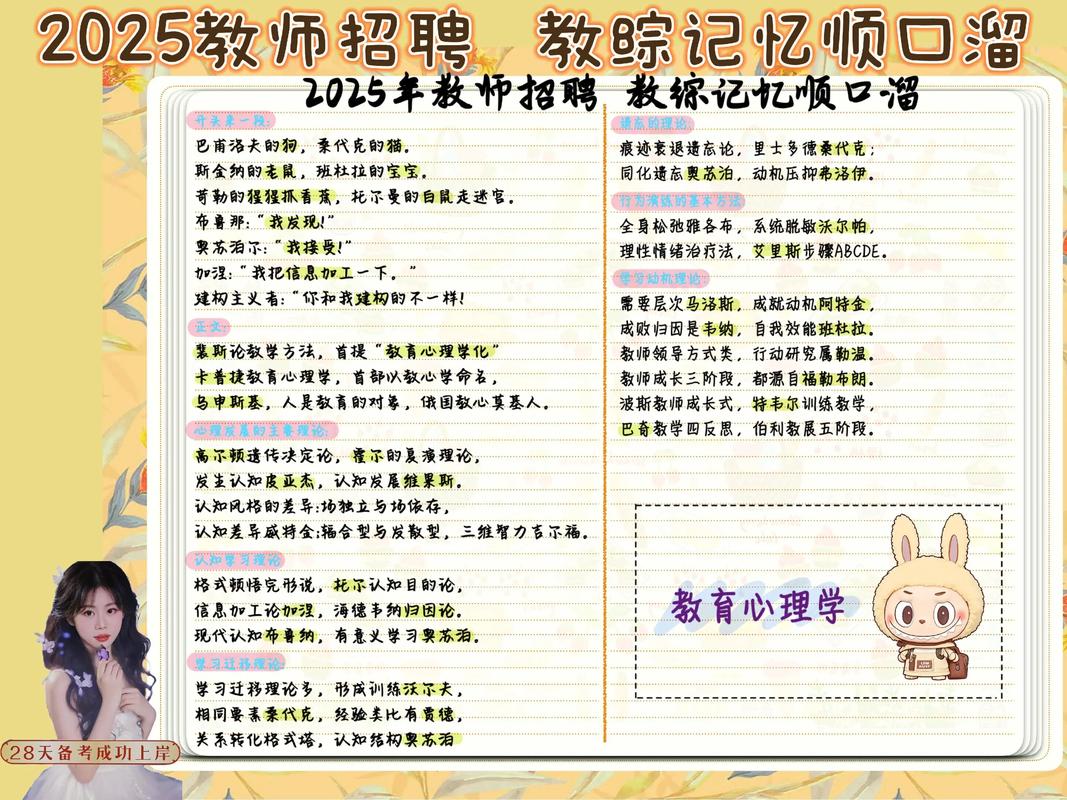 2025教师招聘 教综记忆顺口溜
2025年教师招聘 教综记忆顺口溜
开头来一段:
巴甫洛夫的狗，桑代克的猫。
斯金纳的老鼠，班杜拉的宝宝。
苛勒的猩猩抓香蕉，托尔曼的白鼠走迷宫。
布鲁那:“我发现!”
奥苏泊尔:“我接受!”
加涅:“我把信息加工一下。”
建构主义者:“你和我建构的不一样!
正文:
裴斯论教学方法，首提“教育心理学化”
卡普捷教育心理学，首部以教心学命名，
乌申斯基，人是教育的对象，俄国教心奠基人。
心理发展的主要理论:
高尔顿遗传决定论，霍尔的复演理论，
发生认知皮亚杰，认知发展维果斯。
认知风格的差异:场独立与场依存，
认知差异威特金:辐合型与发散型，三维智力吉尔福。
认知学习理论
格式顿悟完形说，托尔认知目的论，
信息加工论加涅，海德韦纳归因论。
现代认知布鲁纳，有意义学习奥苏泊。
学习迁移理论:
学习迁移理论多，形成训练沃尔夫，
相同要素桑代克，经验类比有贾德，
关系转化格式塔，认知结构奥苏泊
遗忘的理论:
痕迹衰退遗忘论，里士多德桑代克；
同化遗忘奥苏泊，动机压抑弗洛伊。
行为演练的基本方法:
全身松弛雅各布，系统脱敏沃尔帕，
理性情绪治疗法，艾里斯步骤ABCDE。
学习动机理论:
需要层次马洛斯，成就动机阿特金，
成败归因是韦纳，自我效能班杜拉。
教师领导方式类，行动研究属勒温。
教师成长三阶段，都源自福勒布朗。
波斯教师成长式，特韦尔训练教学，
巴奇教学四反思，伯利教展五阶段。
教育心理学
28天备考成功上岸